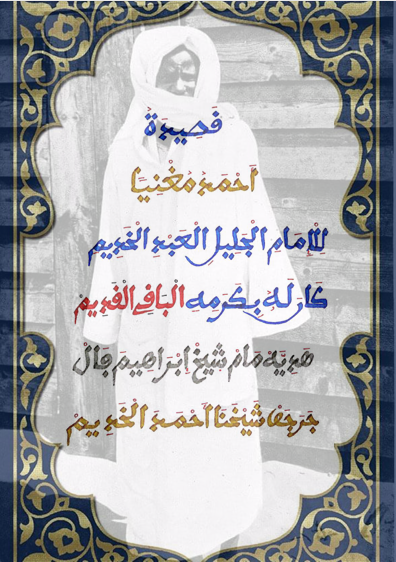 قَصِيدَةُ
أَحْمَدَ مُغْنِيًا
لِلْإِمَامِ الْجَلِيلِ الْعَبْدِ الْخَدِيمِ
كَانَ لَهُ بِكَرَمِهِ الْبَاقِي الْقَدِيمِ
هدية مام شيخ ابراهيم فال
جرجف شيخنا احمد الخديم